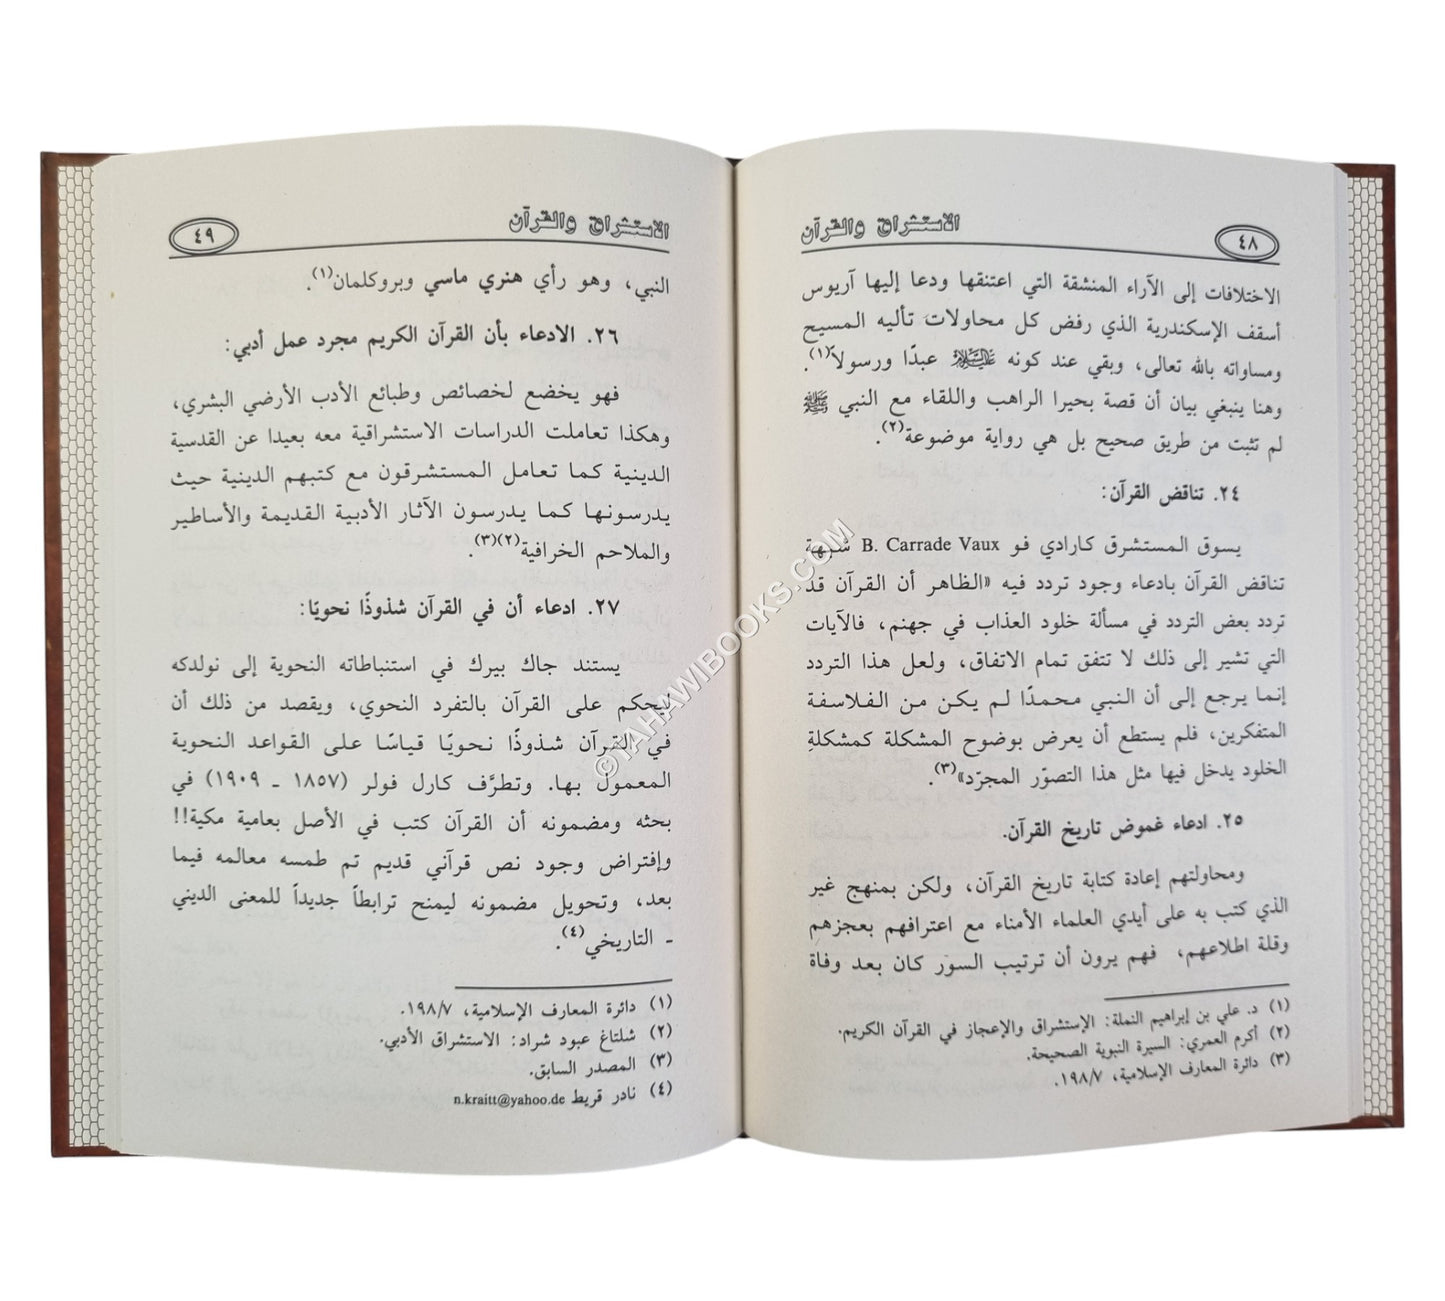 الاستشراق والقرآن
٤٨
الاختلافات إلى الآراء المنشقة التي اعتنقها ودعا إليها آريوس
أسقف الإسكندرية الذي رفض كل محاولات تأليه المسيح
ومساواته بالله تعالى، وبقي عند كونه عليه السلام عبدًا ورسولاً(١).
وهنا ينبغي بيان أن قصة بحيرا الراهب واللقاء مع النبي ﷺ
لم تثبت من طريق صحيح بل هي رواية موضوعة(٢).
٢٤. تناقض القرآن:
يسوق المستشرق كارادي فو B. Carrade Vaux شبهة
تناقض القرآن بادعاء وجود تردد فيه «الظاهر أن القرآن قد
تردد بعض التردد في مسألة خلود العذاب في جهنم، فالآيات
التي تشير إلى ذلك لا تتفق تمام الاتفاق، ولعل هذا التردد
إنما يرجع إلى أن النبي محمدًا لم يكن من الفلاسفة
المتفكرين، فلم يستطع أن يعرض بوضوح المشكلة كمشكلةِ
الخلود يدخل فيها مثل هذا التصوّر المجرّد»(٣).
٢٥. ادعاء غموض تاريخ القرآن.
ومحاولتهم إعادة كتابة تاريخ القرآن، ولكن بمنهج غير
الذي كتب به على أيدي العلماء الأمناء مع اعترافهم بعجزهم
وقلة اطلاعهم، فهم يرون أن ترتيب السور كان بعد وفاة
(١) د. علي بن إبراهيم النملة: الإستشراق والإعجاز في القرآن الكريم.
(٢) أكرم العمري: السيرة النبوية الصحيحة.
(٣) دائرة المعارف الإسلامية، ١٩٨/٧.
الاستشراق والقرآن
٤٩
النبي، وهو رأي هنري ماسي وبروكلمان(١).
٢٦. الادعاء بأن القرآن الكريم مجرد عمل أدبي:
فهو يخضع لخصائص وطبائع الأدب الأرضي البشري،
وهكذا تعاملت الدراسات الاستشراقية معه بعيدا عن القدسية
الدينية كما تعامل المستشرقون مع كتبهم الدينية حيث
يدرسونها كما يدرسون الآثار الأدبية القديمة والأساطير
والملاحم الخرافية(٢)(٣).
٢٧. ادعاء أن في القرآن شذوذًا نحويًا:
يستند جاك بيرك في استنباطاته النحوية إلى نولدكه
ليحكم على القرآن بالتفرد النحوي، ويقصد من ذلك أن
في القرآن شذوذًا نحويًا قياسًا على القواعد النحوية
المعمول بها. وتطرَّف كارل فولر (١٨٥٧ - ١٩٠٩) في
بحثه ومضمونه أن القرآن كتب في الأصل بعامية مكية!!
وإفتراض وجود نص قرآني قديم تم طمسه معالمه فيما
بعد، وتحويل مضمونه ليمنح ترابطاً جديداً للمعنى الديني
- التاريخي(٤).
(١) دائرة المعارف الإسلامية، ١٩٨/٧.
(٢) شلتاغ عبود شراد: الاستشراق الأدبي.
(٣) المصدر السابق.
(٤) نادر قريط n.kraitt@yahoo.de
©TAHAWIBOOKS.COM